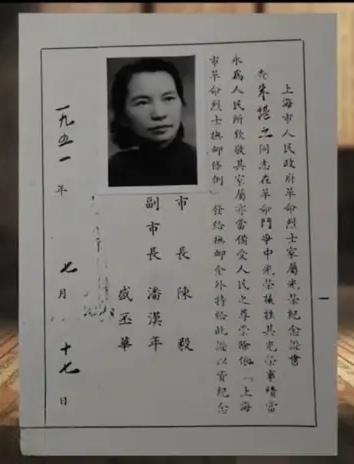 上海市人民政府革命烈士家屬光榮紀念證書
查朱堪之同志在革命鬥爭中光榮犧牲其光榮事蹟當
永為人民所欽敬其家屬亦當備受人民之尊崇除依「上海
市革命烈士撫卹條例」發給撫卹金外特給此證以資紀念
市長 陳毅
副市長 潘漢年
盛丕華
一九五一年七月十七日